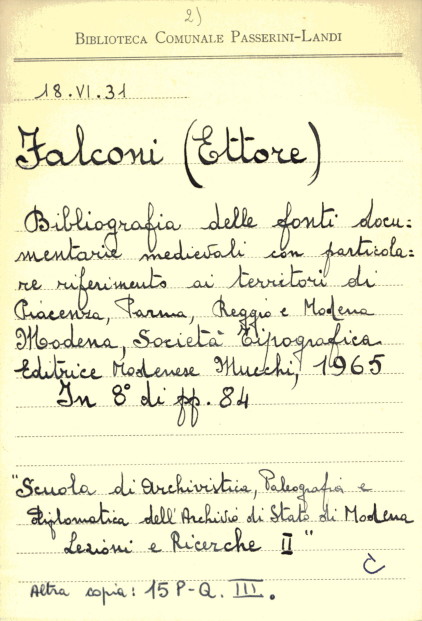 2)
BIBLIOTECA COMUNALE PASSERINI-LANDI
18.VI.31
Falconi (Ettore)
Bibliografia delle fonti docu:
mentarie medievali con particola:
re riferimento ai territori di
Piacenza, Parma, Reggio e Modena
Modena, Società Tipografica
Editrice Modenese Mucchi, 1965
In 8° di pp. 84
"Scuola di Archivistica, Paleografia e
Diplomatica dell'Archivio di Stato di Modena
Lezioni e Ricerche II"
Č
Altra copia: 15 P-Q. III.